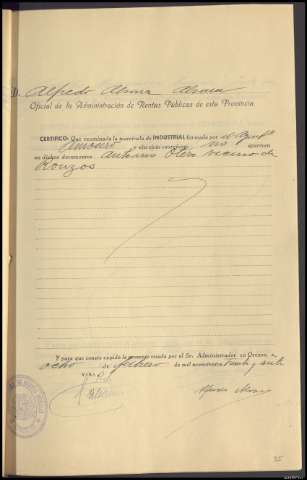 D. Alfredo Alsina Alsina
Oficial de la Administración de Rentas Públicas de esta Provincia.
CERTIFICO: Que examinada la matrícula de INDUSTRIAL formada por el Aynt.º
Amoeiro y ejercicio corriente no aparece
en dichos documentos Antonio Otero vecino de
Rouzos
Y para que conste expido la presente visada por el Sr. Administrador en Orense, a
ocho de febrero de mil novecientos treinta y siete
V.º B.º
Alfredo Alsina